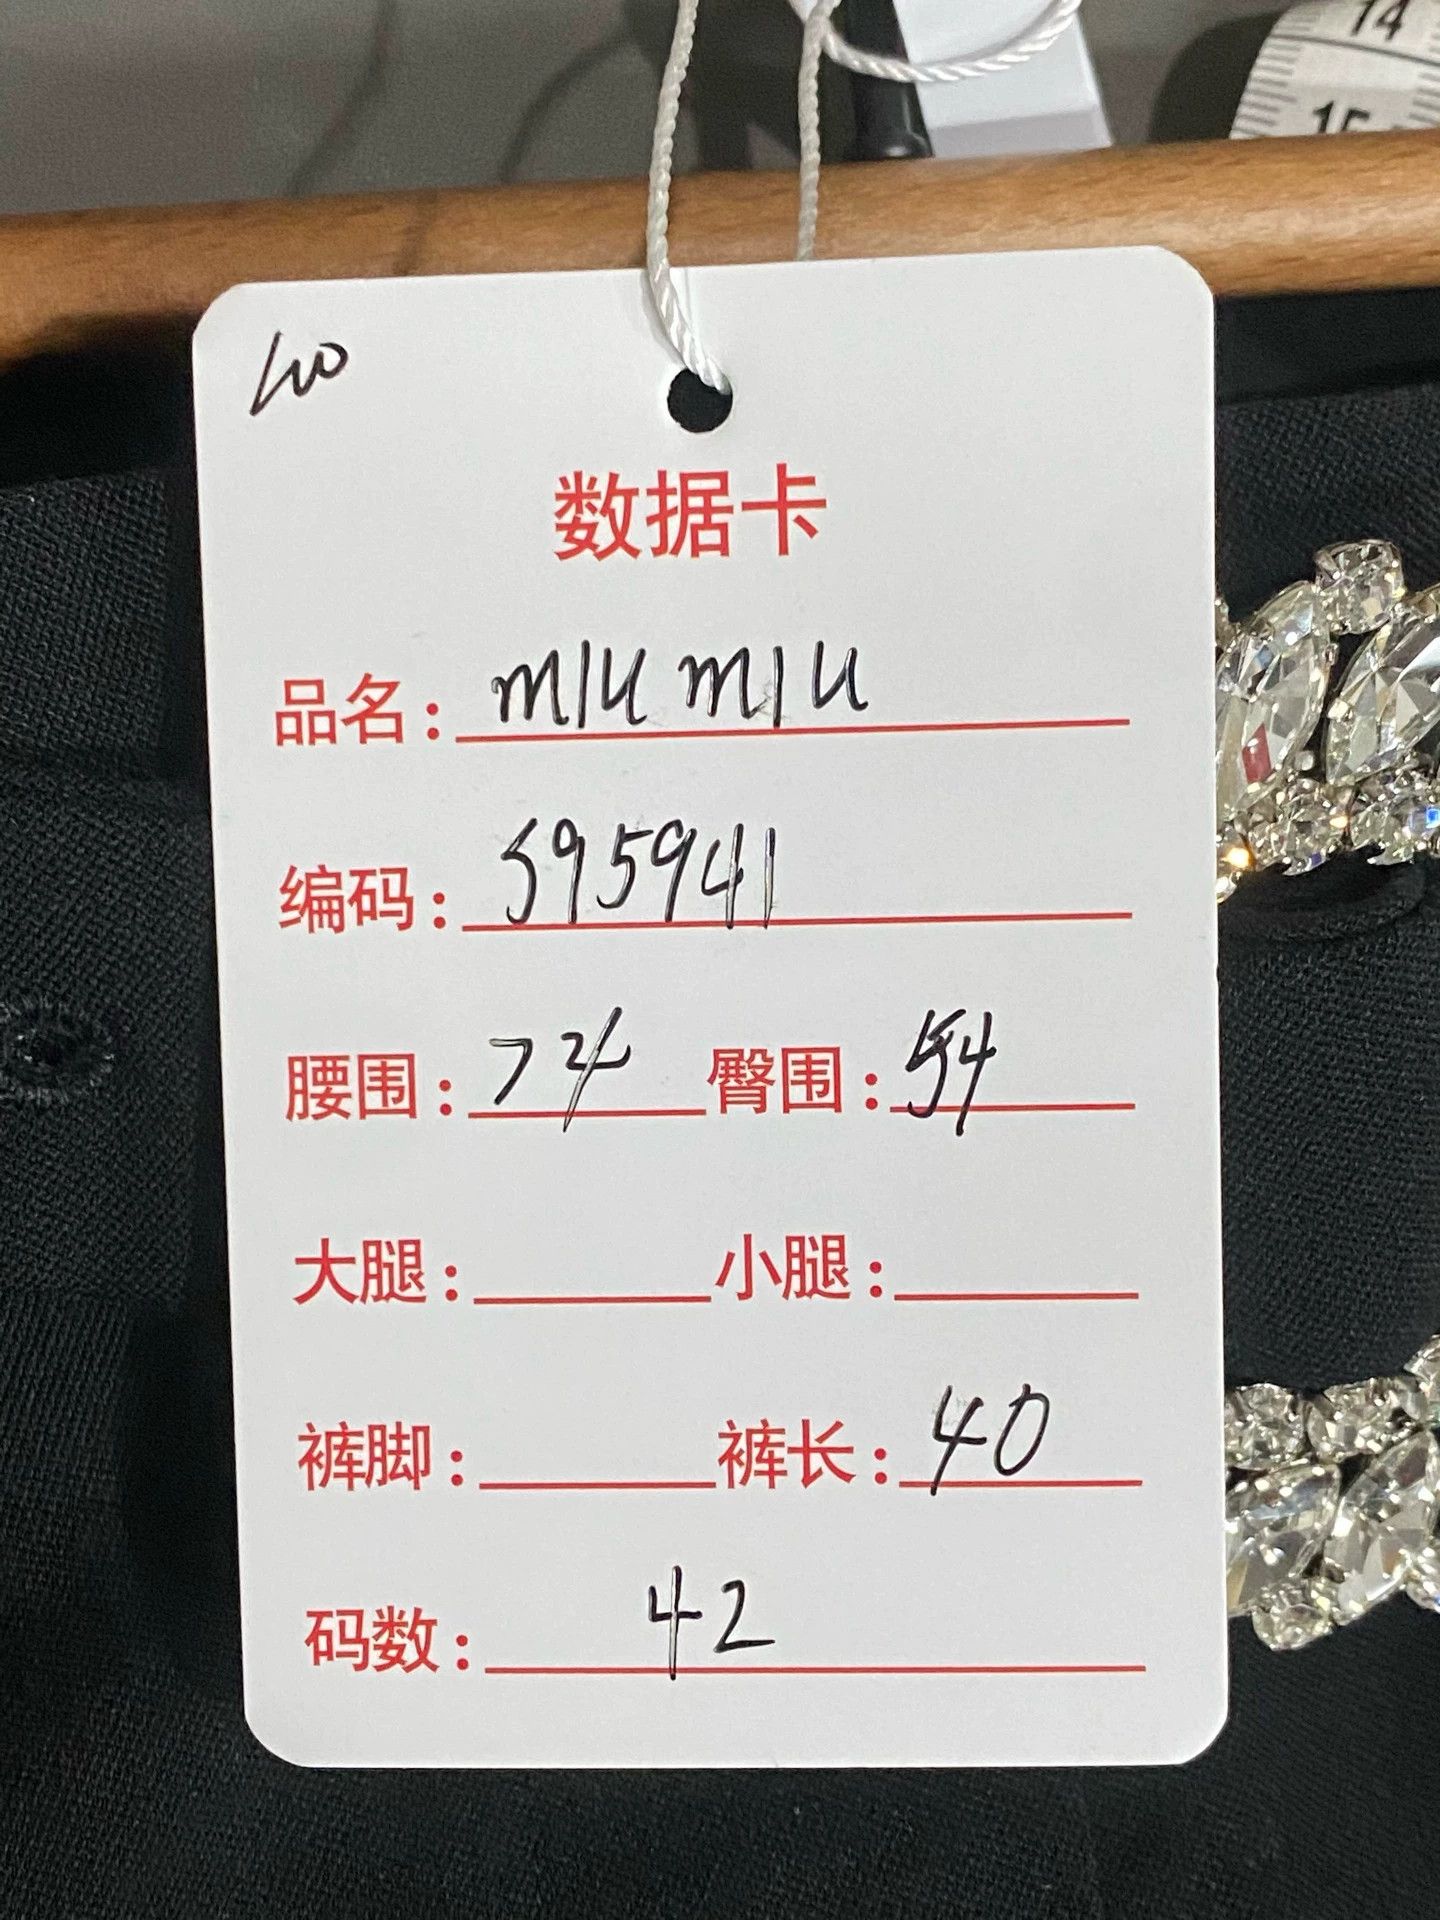 14
15
数据卡
品名：MIU MIU
编码：595941
腰围：74 臀围：54
大腿： 小腿：
裤脚： 裤长：40
码数：42